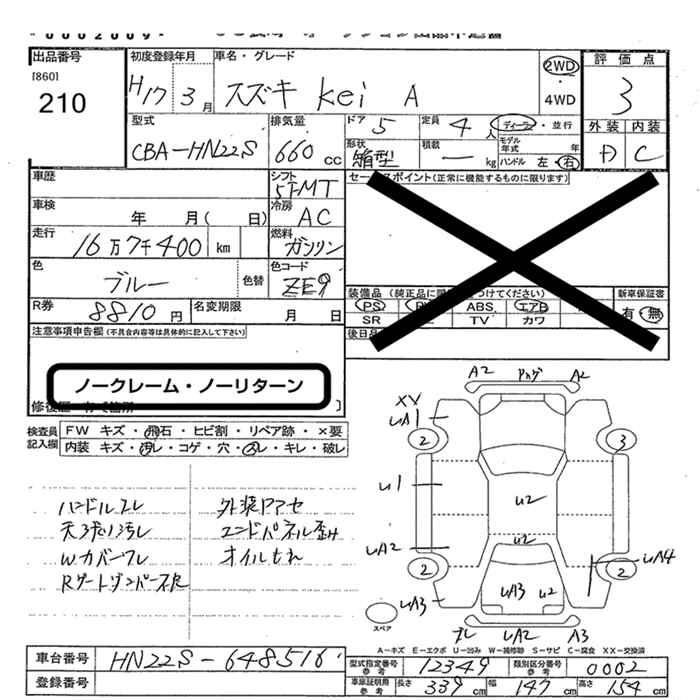 *0002009*
出品番号
[860]
210
初度登録年月
H17 3月
車名・グレード
スズキ Kei A
2WD
・
4WD
評価点
3
型式
CBA-HN22S
排気量
660 cc
ドア 5
定員 4人
ディーラー・並行
形状
箱型
積載 ー kg
モデル年式 年
ハンドル 左 右
外装 内装
D C
車歴
シフト
5FMT
セールスポイント(正常に機能するものに限ります)
車検
年 月( 日)
冷房
AC
走行
16万7千400 km
燃料
ガソリン
色
ブルー
色替
色コード
ZE9
R券
8810円
名変期限
月 日
装備品
PS ABS エアB
SR TV カワ
新車保証書
有・無
後日品
注意事項申告欄(不具合内容等は具体的に記入して下さい)
ノークレーム・ノーリターン
検査員記入欄
FW キズ・飛石・ヒビ割・リペア跡・×要
内装 キズ・汚レ・コゲ・穴・スレ・キレ・破レ
ハンドルスレ
天張り汚レ
外装ドアセ
エンドパネル歪み
オイルもれ
A2 A2
XV
UA1
2 3
U1
U2
UA2
U2
UA4
2 2
UA3
UA3 U2
UA2 A3
スペア
A-キズ E-エクボ U-凹み W-補修跡 S-サビ C-腐食 XX-交換済
車台番号
HN22S-648516
登録番号
型式指定番号
参考
12349
類別区分番号
参考
0002
車庫証明用
参考
長さ 339 cm
幅 147 cm
高さ 154 cm